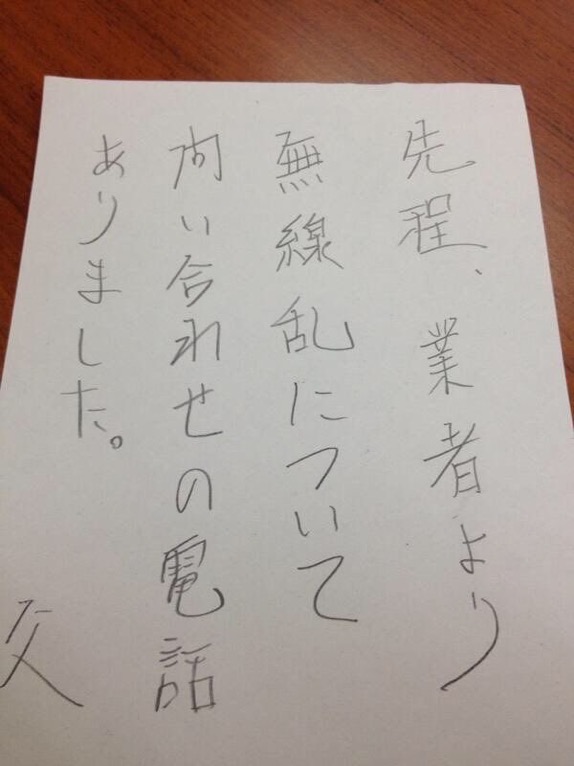 先程、業者より
無線乱について
問い合わせの電話
ありました。
交